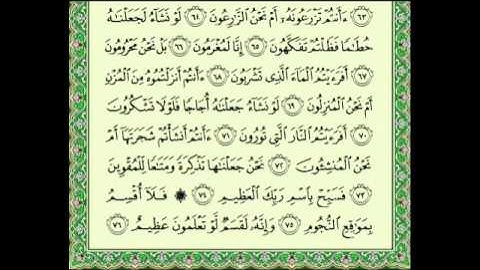 ٦٣ ءَأَنتُمْ تَزْرَعُونَهُۥٓ أَمْ نَحْنُ ٱلزَّٰرِعُونَ ٦٤ لَوْ نَشَآءُ لَجَعَلْنَٰهُ
حُطَٰمًا فَظَلْتُمْ تَفَكَّهُونَ ٦٥ إِنَّا لَمُغْرَمُونَ ٦٦ بَلْ نَحْنُ مَحْرُومُونَ
٦٧ أَفَرَءَيْتُمُ ٱلْمَآءَ ٱلَّذِى تَشْرَبُونَ ٦٨ ءَأَنتُمْ أَنزَلْتُمُوهُ مِنَ ٱلْمُزْنِ
أَمْ نَحْنُ ٱلْمُنزِلُونَ ٦٩ لَوْ نَشَآءُ جَعَلْنَٰهُ أُجَاجًا فَلَوْلَا تَشْكُرُونَ
٧٠ أَفَرَءَيْتُمُ ٱلنَّارَ ٱلَّتِى تُورُونَ ٧١ ءَأَنتُمْ أَنشَأْتُمْ شَجَرَتَهَآ أَمْ
نَحْنُ ٱلْمُنشِـُٔونَ ٧٢ نَحْنُ جَعَلْنَٰهَا تَذْكِرَةً وَمَتَٰعًا لِّلْمُقْوِينَ
٧٣ فَسَبِّحْ بِٱسْمِ رَبِّكَ ٱلْعَظِيمِ ٧٤ ۞ فَلَآ أُقْسِمُ
بِمَوَٰقِعِ ٱلنُّجُومِ ٧٥ وَإِنَّهُۥ لَقَسَمٌ لَّوْ تَعْلَمُونَ عَظِيمٌ ٧٦